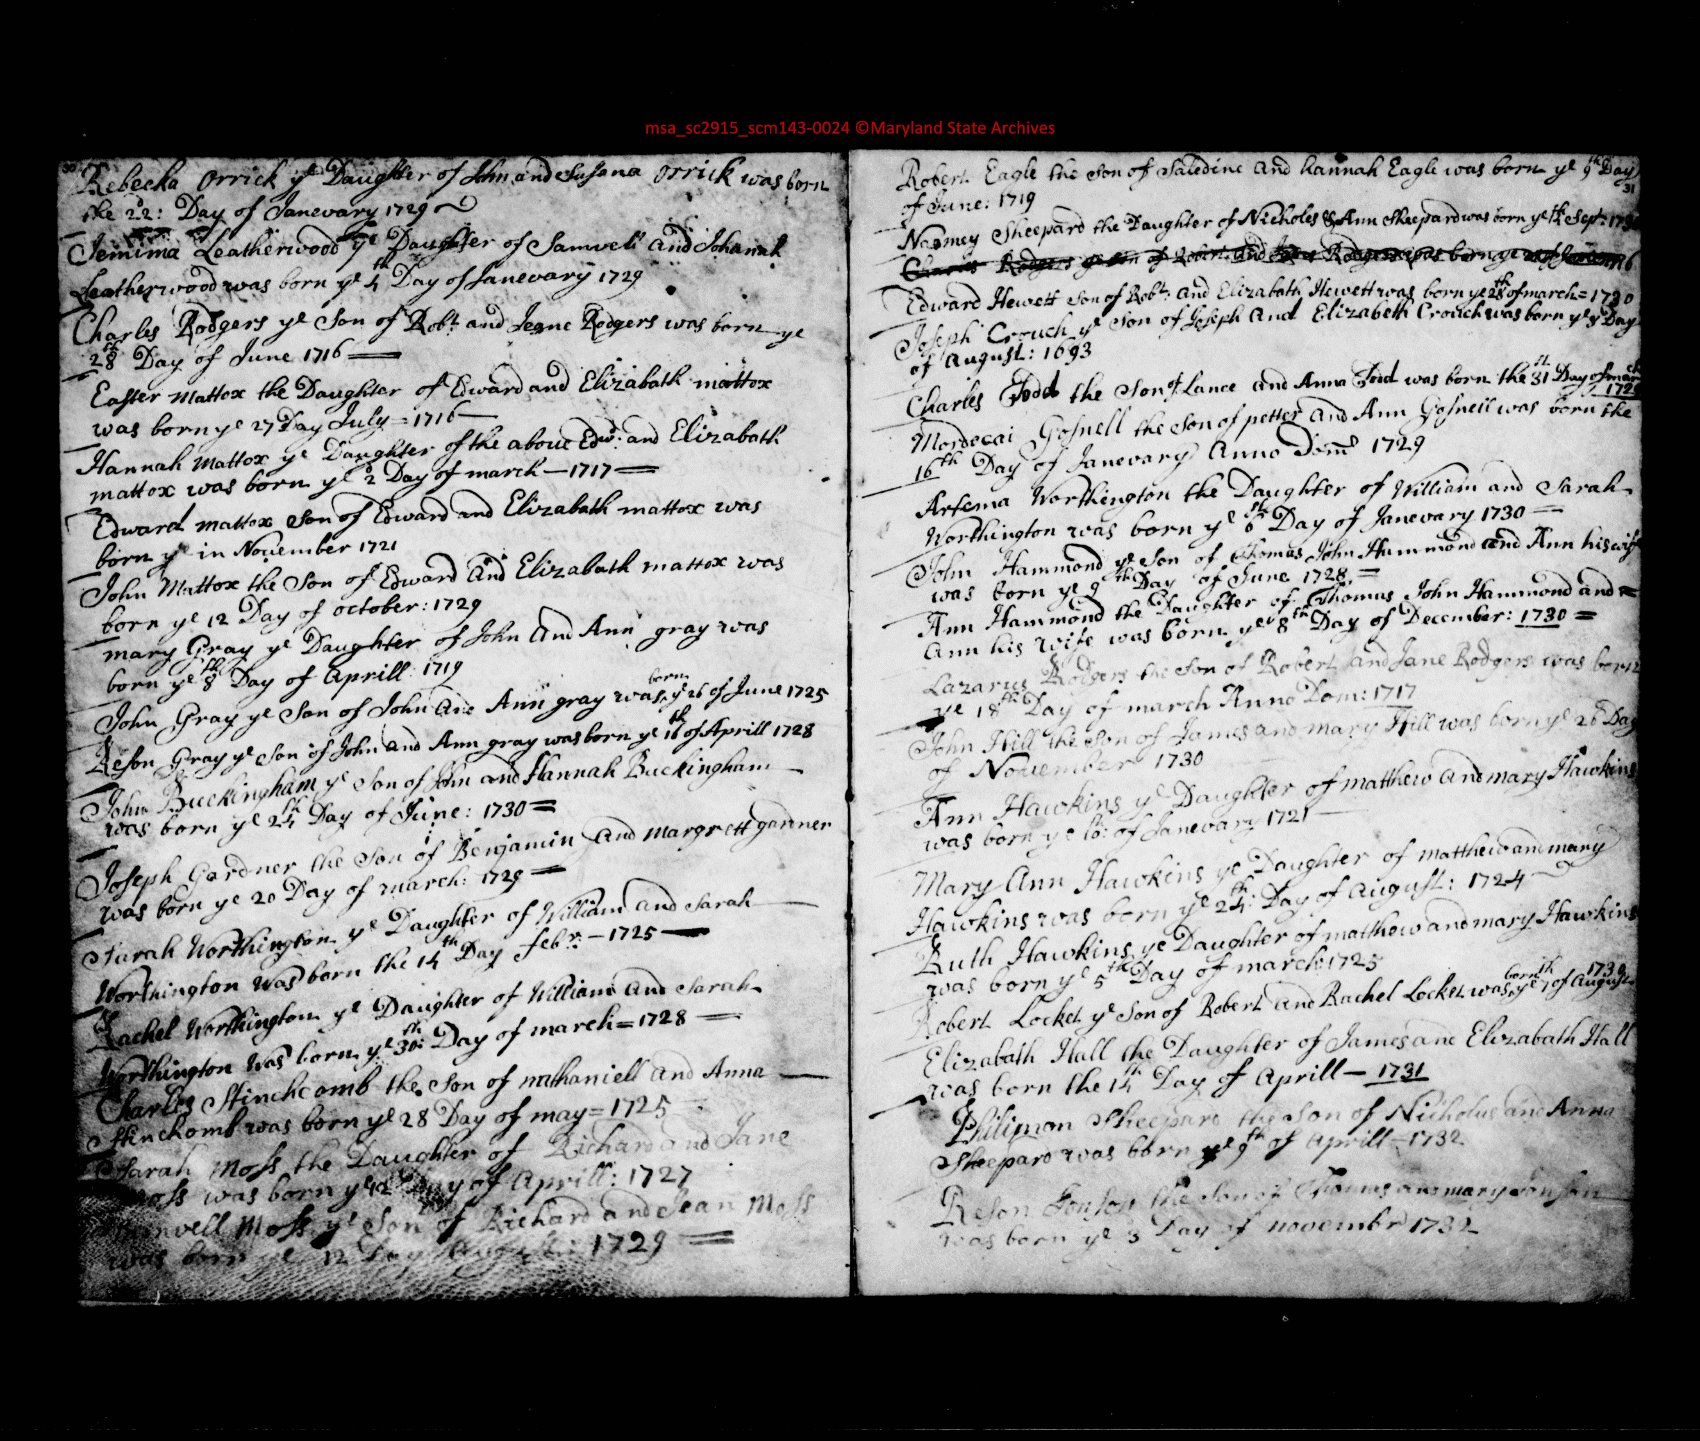 msa_sc2915_scm143-0024 ©Maryland State Archives
30
Rebecka Orrick ye Daughter of John and Susana Orrick was born
the 22d: Day of Janevary 1729
Jemima Leatherwood ye Daughter of Samvell and Johanah
Leatherwood was born ye 4th Day of Janevary 1729
Charles Rodgers ye Son of Robt. and Jeane Rodgers was born ye
28th Day of June 1716
Easter Mattox the Daughter of Edward and Elizabath mattox
was born ye 27 Day July = 1716
Hannah Mattox ye Daughter of the aboue Edwd: and Elizabath
mattox was born ye 2d Day of march — 1717
Edward mattox Son of Edward and Elizabath mattox was
born ye in November 1721
John Mattox the Son of Edward and Elizabath mattox was
born ye 12 Day of october: 1729
mary Gray ye Daughter of John and Ann gray was
born ye 8th Day of Aprill: 1719
John Gray ye Son of John and Ann gray was born ye 26 of June 1725
Reson Gray ye Son of John and Ann gray was born ye 16th of Aprill 1728
John Buckingham ye Son of John and Hannah Buckingham
was born ye 24th Day of June: 1730
Joseph Gardner the Son of Benjamin and Margrett gardner
was born ye 20 Day of march: 1729
Sarah Worthington ye Daughter of William and Sarah
Worthington was born the 14th Day febr: — 1725
Rachel Worthington ye Daughter of William and Sarah
Worthington was born ye 30th: Day of march = 1728
Charles Stinchcomb the Son of nathaniell and Anna
Stinchomb was born ye 28 Day of may = 1725
Sarah Moss the Daughter of Richard and Jane
Moss was born ye 12 Day of Aprill: 1727
Moss ye Son of Richard and Jean Moss
was born ye 12 Day August: 1729
Robert Eagle the Son of Saledine and hannah Eagle was born ye 9th Day
31
of June: 1719
Naomey Sheepard the Daughter of Nicholes & Ann Sheepard was born ye Sept:
Charles Rodgers ye Son of Robert and Rodgers was born ye
Edward Hewett Son of Robt: and Elizabath Hewett was born ye 28th of march = 1730
Joseph Crouch ye Son of Joseph and Elizabeth Crouch was born ye 9 Day
of August: 1693
Charles Todd the Son of Lance and Anna Todd was born the 31st Day of march
Mordecai Gosnell the Son of petter and Ann Gosnell was born the
16th Day of Janevary Anno Dom 1729
Artema Worthington the Daughter of William and Sarah
Worthington was born ye 6th Day of Janevary 1730
John Hammond ye Son of Thomas John Hammond and Ann his wife
was born ye 9th Day of June 1728
Ann Hammond the Daughter of Thomas John Hammond and
Ann his wife was born ye 8th Day of December: 1730
Lazarus Rodgers the Son of Robert and Jane Rodgers was born
ye 18th Day of march Anno Dom: 1717
John Hill the Son of James and mary Hill was born ye 26 Day
of November 1730
Ann Hawkins ye Daughter of matthew and mary Hawkins
was born ye 10: of Janevary 1721
Mary Ann Hawkins ye Daughter of matthew and mary
Hawkins was born ye 24th: Day of August: 1724
Ruth Hawkins ye Daughter of matthew and mary Hawkins
was born ye 5th Day of march: 1725
Robert Locket ye Son of Robert and Rachel Locket was born ye 7th of August
Elizabath Hall the Daughter of James and Elizabath Hall
was born the 14th Day of Aprill — 1731
Philiman Sheepard the Son of Nicholus and Anna
Sheepard was born ye 9th of Aprill = 1732
Reson Jonson the Son of Thomas and mary Jonson
was born ye 3 Day of november 1732